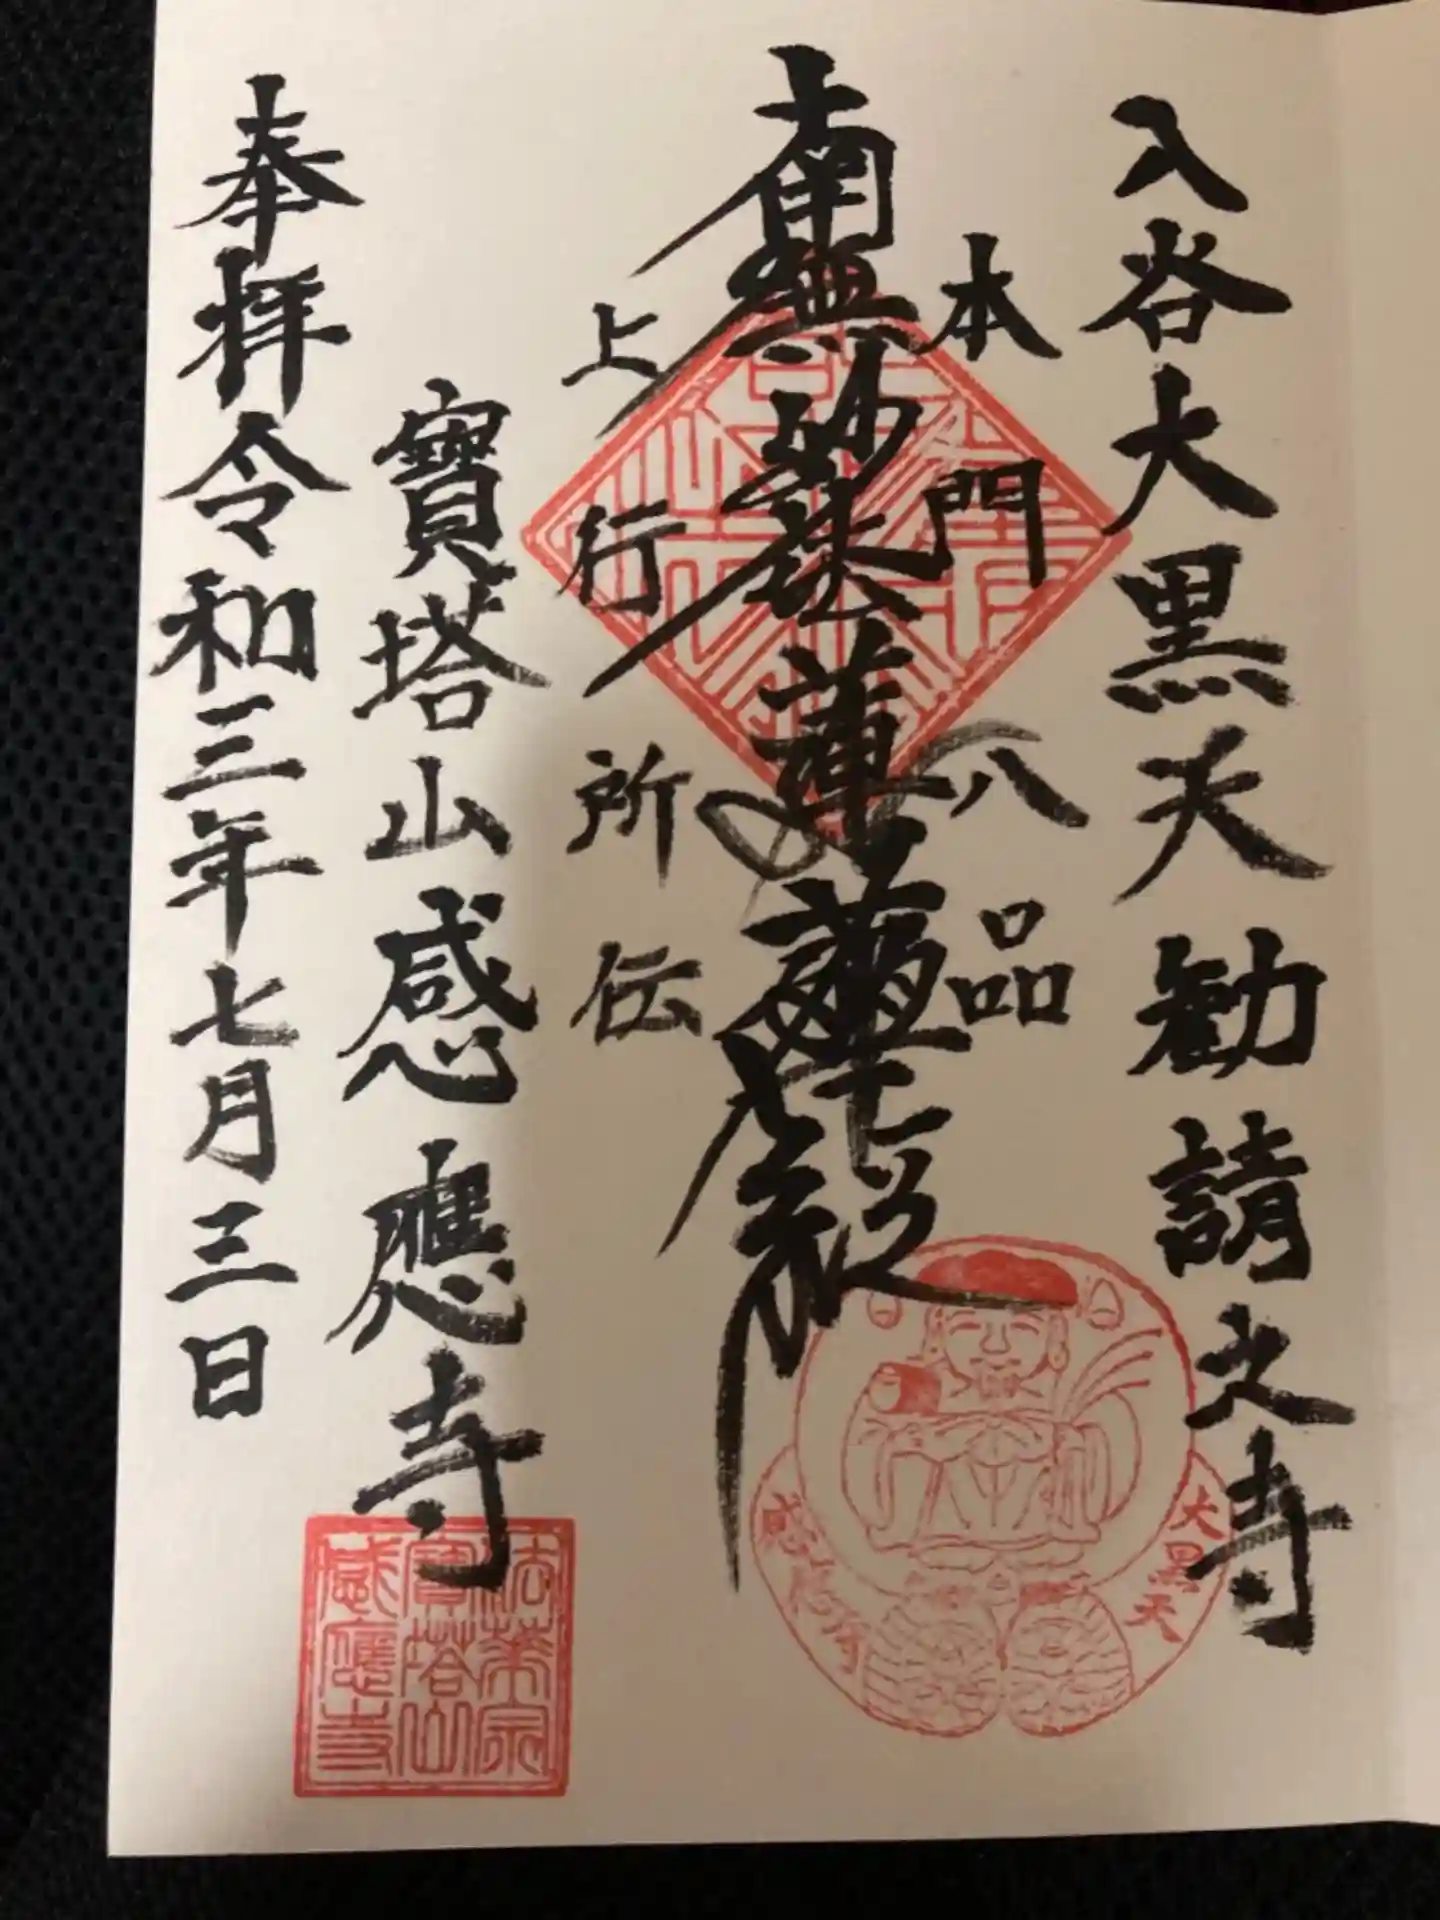 入谷大黒天勧請之寺
本門八品
南無妙法蓮華経
上行所伝
寶塔山感應寺
奉拝令和三年七月三日
大黒天
感應寺
法華宗
寶塔山
感應寺